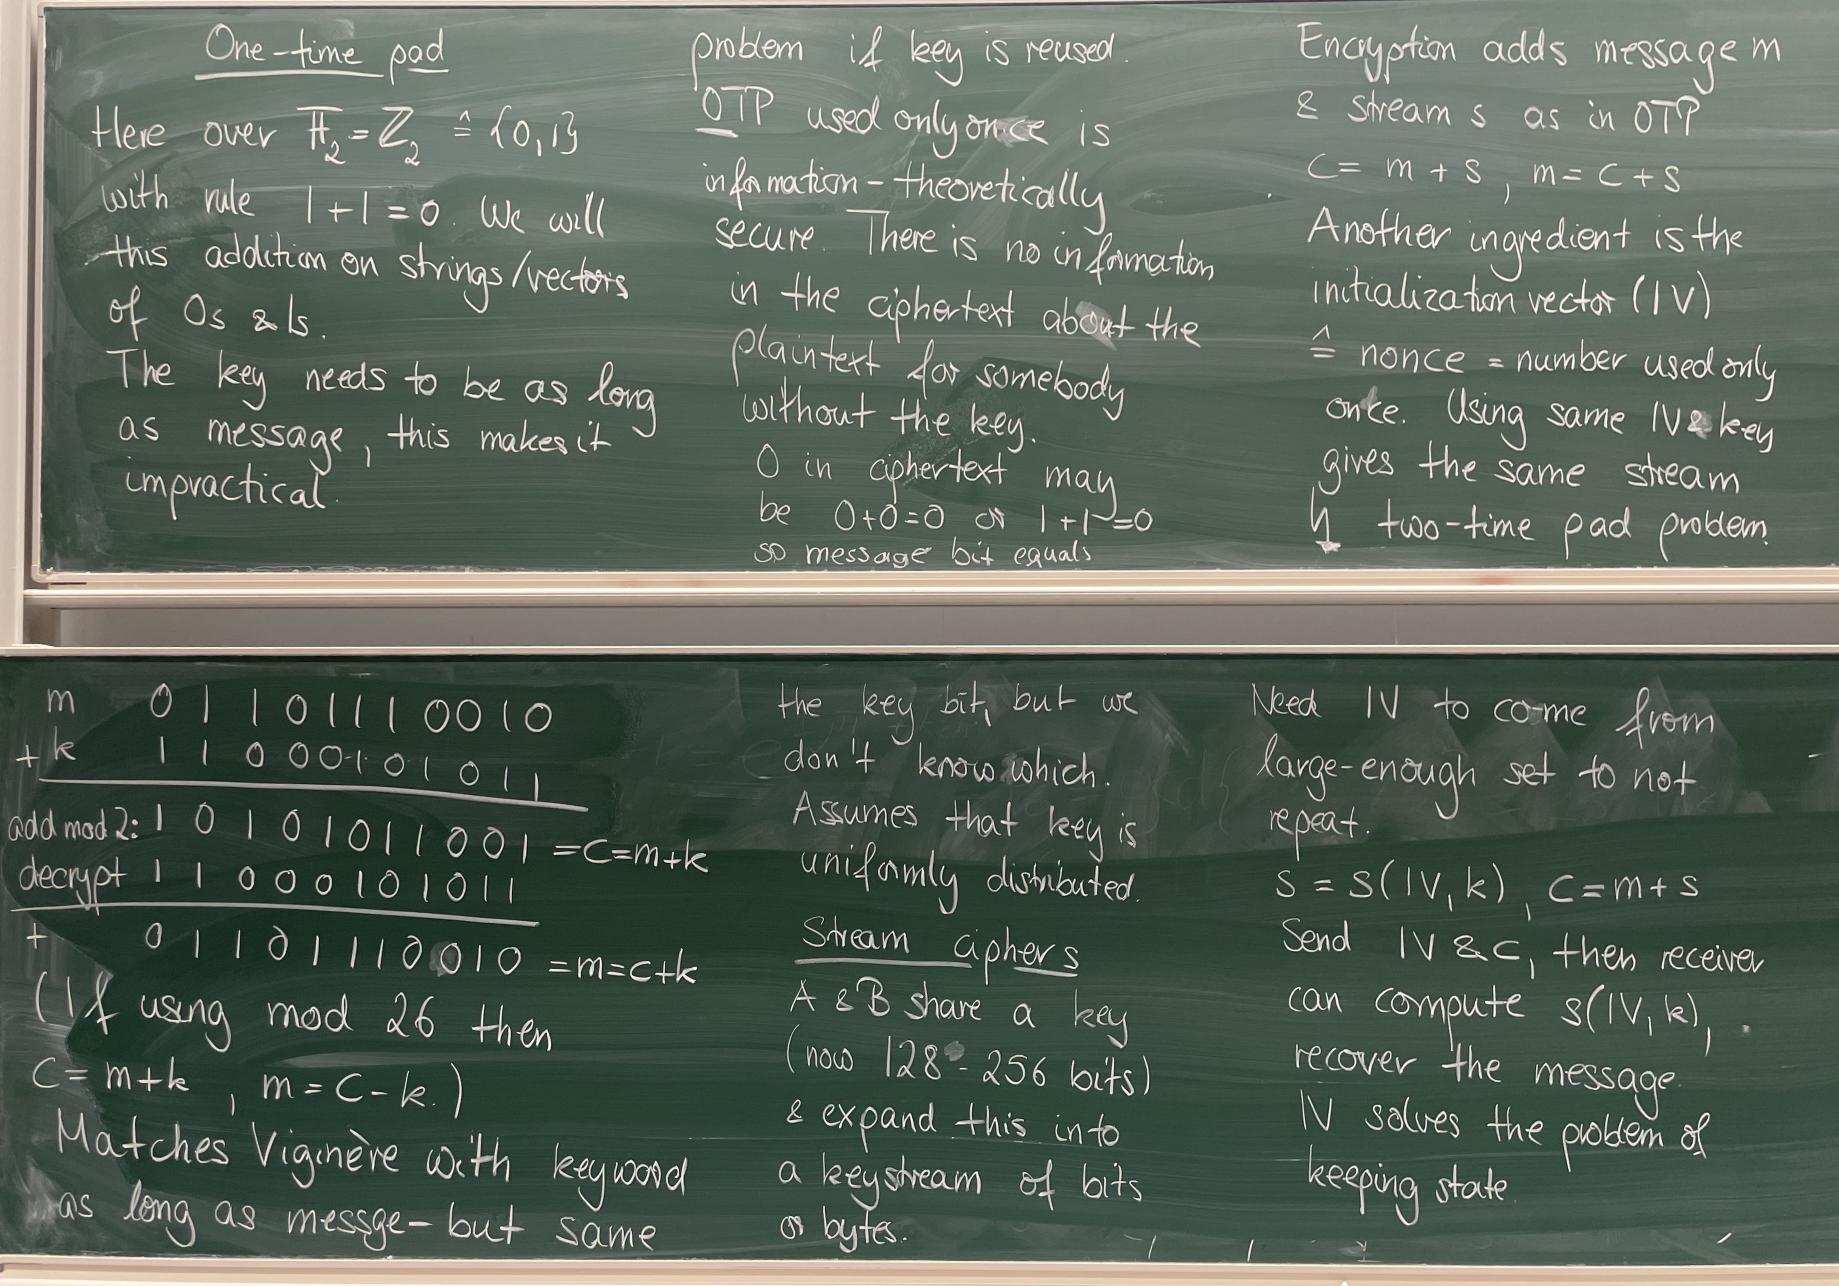 One-time pad
Here over 𝔽₂ = ℤ₂ ≙ {0,1}
with rule 1+1=0. We will
this addition on strings/vectors
of 0s & 1s.
The key needs to be as long
as message, this makes it
impractical.
m 0 1 1 0 1 1 1 0 0 1 0
+ k 1 1 0 0 0 1 0 1 0 1 1
add mod 2: 1 0 1 0 1 0 1 1 0 0 1 = c = m+k
decrypt 1 1 0 0 0 1 0 1 0 1 1
+ 0 1 1 0 1 1 1 0 0 1 0 = m = c+k
(If using mod 26 then
c = m+k , m = c-k.)
Matches Viginère with keyword
as long as messge - but same
problem if key is reused.
OTP used only once is
information-theoretically
secure. There is no information
in the ciphertext about the
plaintext for somebody
without the key.
0 in ciphertext may
be 0+0=0 or 1+1=0
so message bit equals
the key bit, but we
don't know which.
Assumes that key is
uniformly distributed.
Stream ciphers
A & B share a key
(now 128-256 bits)
& expand this into
a keystream of bits
or bytes.
Encryption adds message m
& stream s as in OTP
c = m + s , m = c + s
Another ingredient is the
initialization vector (IV)
≙ nonce = number used only
once. Using same IV & key
gives the same stream
↯ two-time pad problem.
Need IV to come from
large-enough set to not
repeat.
s = s(IV, k) , c = m + s
Send IV & c, then receiver
can compute s(IV, k),
recover the message.
IV solves the problem of
keeping state.